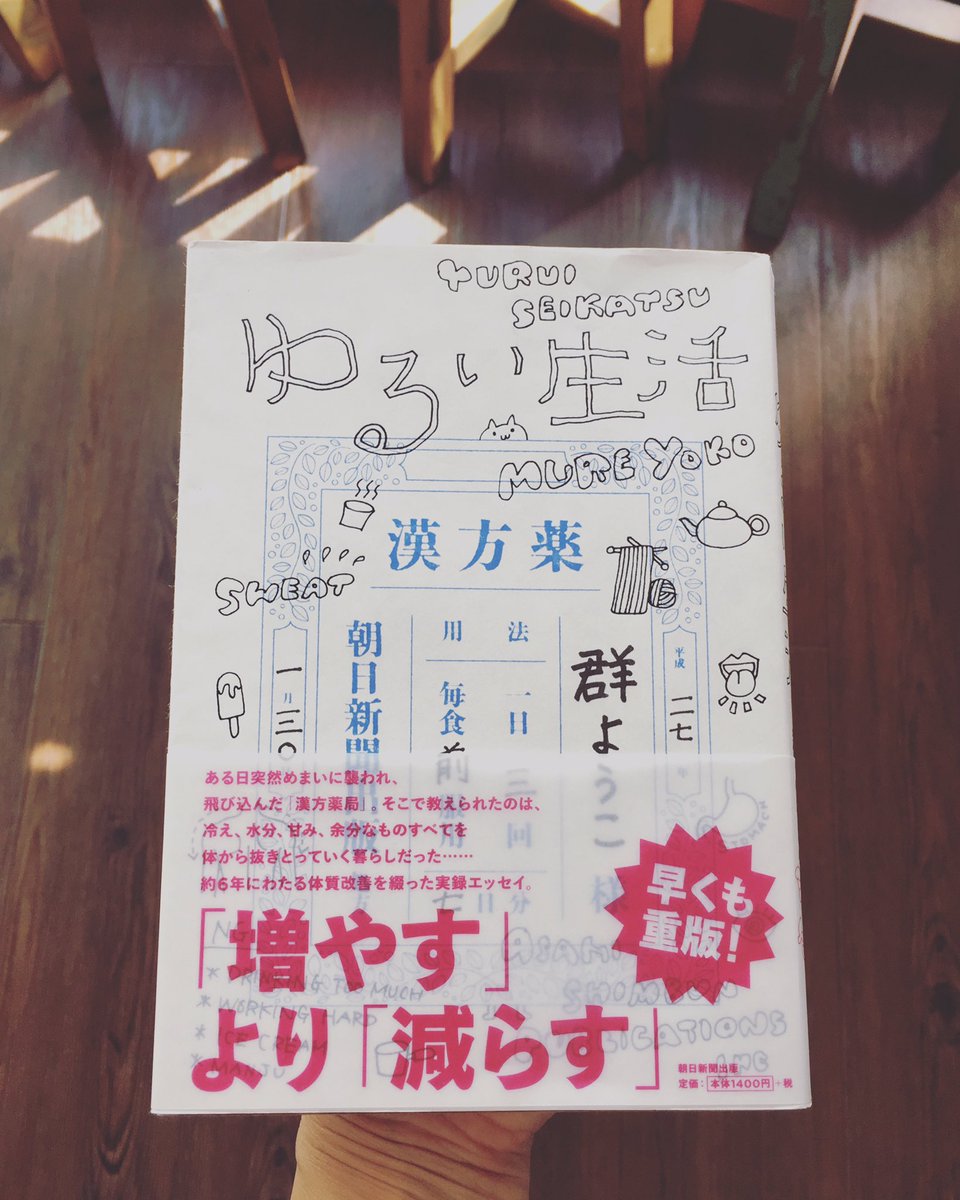 YURUI
SEIKATSU
ゆるい生活
MURE YOKO
漢方薬
SWEAT
平成二七年
群ようこ様
用法
一日三回
毎食前服用
七日分
朝日新聞出版
一月三〇
STOMACH
ある日突然めまいに襲われ、
飛び込んだ「漢方薬局」。そこで教えられたのは、
冷え、水分、甘み、余分なものすべてを
体から抜きとっていく暮らしだった……
約6年にわたる体質改善を綴った実録エッセイ。
早くも
重版!
「増やす」
より「減らす」
ASAHI
SHIMBUN
PUBLICATIONS
INC
* DRINKING TOO MUCH
* WORKING HARD
* ICE CREAM
* MANJU
朝日新聞出版
定価:本体1400円+税